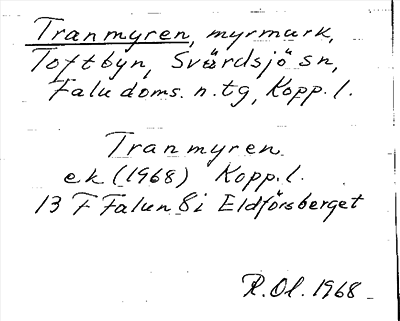 Tranmyren, myrmark,
Toftbyn, Svärdsjö sn,
Falu doms. n. tg, Kopp. l.
Tranmyren
ek (1968) Kopp. l.
13 F Falun 8i Eldforsberget
R. Ol. 1968